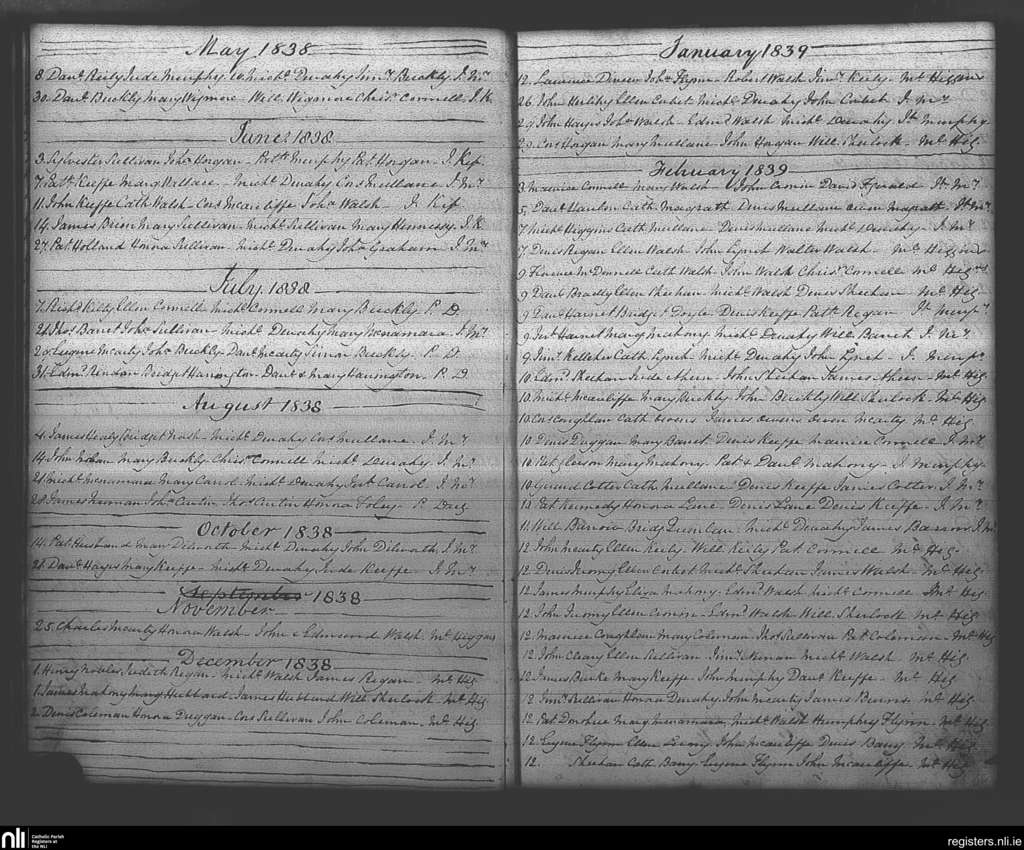 May 1838
8. Danl. Reily Jude Murphy. Wit. Michl. Denahy Jms. Buckly J. Mr.
30. Danl. Buckly Mary Wigmore - Will. Wigmore Chris. Connell J. K.
June 1838
3. Sylvester Sullivan Joha. Horgan - Patk. Murphy Pat. Horgan - J. Kef
7. Patk. Keeffe Mary Wallace - Michl. Denahy Cors. Mullane J. Mr.
11. John Keeffe Cath Walsh - Cors. Mcauliffe Joha. Walsh J. Kif
14. James Bion Mary Sullivan - Michl. Sullivan Mary Hennessy J. K.
27. Pat Holland Honora Sullivan - Michl. Denahy Joha. Graham J. Mr.
July. 1838
7. Richd. Kelly Ellen Connell Michl. Connell Mary Buckly. P. D.
21. Jas. Banet Joha. Sullivan - Michl. Denahy Mary Mcnamara. J. Mr.
29. Eugene Mcarty Joha. Buckly. Danl. Mcarty Simon Buckly. P. D.
31. Edmd. Bridget Harrington - Danl. & Mary Harrington - P. D.
August 1838
4. James Healy Bridget Nash - Michl. Denahy Cors. Mullane. J. Mr.
14. John Nolan Mary Buckly. Chris. Connell Michl. Denahy. J. Mr.
21. Michl. Mcnamara Mary Carrol. Michl. Denahy Pat Carrol. J. Mr.
28. James Joha. Curtin. Thos. Curtin Honora Foley - P. Daly
October 1838
14. Pat Husband Mary Dilworth - Michl. Denahy John Dilworth, J. Mr.
21. Danl. Hayes Mary Keeffe - Michl. Denahy Jude Keeffe. J. Mr.
September 1838
November
25. Charles Mcarty Honora Walsh - John & Edmund Walsh. Mt. Higgins
December 1838
1. Henry Nobles Judith Regan - Michl. Walsh James Regan. Mt. Hig
1. James Mahony Mary Hubbard - James Hubbard Will Sherlock - Mt. Hig
2. Denis Coleman Honora Duggan - Cors. Sullivan John Coleman. Mt. Hig
January 1839
12. Laurence Dineen Joha. Flynn - Robert Walsh Jms. Kiely - Mt. Higgins
26. John Herlihy Ellen Corbet Michl. Denahy John Corbet J. Mr.
29. John Hayes Joha. Walsh - Edmd. Walsh Michl. Denahy. Jt. Murphy
29. Cors. Horgan Mary Mullane - John Horgan Will. Sherlock - Mt. Hig
February 1839
3. Maurice Connell Mary Walsh John Cronin David Fgerald Jt. Mr.
5. Danl. Hanlon Cath. Magrath Denis Mullane Owen Magrath Jt. Mr.
7. Michl. Higgins Cath Mullane Denis Mullane Michl. Denahy J. Mr.
7. Denis Regan Ellen Walsh John Lynch Walter Walsh - Mt. Higgins
9. Florence McDonnell Cath Walsh. John Walsh Chris. Connell Mt. Higs.
9. Danl. Bradly Ellen Sheehan - Michl. Walsh Denis Sheehan Mt. Hig
9. Danl. Harnet Bridget Doyle - Denis Keeffe Patk. Regan Jt. Murphy
9. Harnet Mary Mahony Michl. Denahy Will. Banet J. Mr.
9. Jms. Kelleher Cath Lynch Michl. Denahy John Lynch J. Murpy.
10. Edmd. Sheehan Jude Ahern - John Sheehan James Ahern - Mt. Hig
10. Michl. Mcauliffe Mary Buckly. John Buckly Will Sherlock - Mt. Hig
10. Cors. Coughlan Cath Owens James Owens Owen Mcarty Mt. Hig
10. Denis Duggan Mary Banet - Denis Keeffe Maurice Connell J. Mr.
10. Pat Gleeson Mary Mahony. Pat & Danl. Mahony - J Murphy
10. Garrard Cotter Cath Mullane Denis Keeffe James Cotter J. Mr.
10. Pat Kennedy Honora Lane - Denis Lane Denis Keeffe. J. Mr.
11. Will. Barron Bridg. Michl. Denahy James Barron J. Mr.
12. John Mcarty Ellen Reily. Will. Reily Pat Connell Mt. Hig.
12. Denis Ellen Corbet Michl. Sheehan James Walsh Mt. Hig
12. James Murphy Eliza Mahony - Edmd. Walsh Michl. Connell Mt. Hig
12. John Ellen Cronin - Edmd. Walsh Will. Sherlock Mt. Hig
12. Maurice Coughlan Mary Coleman - Thos. Sullivan Pat Coleman - Mt. Hig
12. John Cleary Ellen Sullivan Jms. Michl. Walsh Mt. Hig.
12. James Burke Mary Keeffe - John Murphy Danl. Keeffe - Mt. Hig
12. Jms. Sullivan Honora Denahy John Mcarty James Mt. Hig
12. Pat Donohue Mary Mcnamara, Michl. Walsh Humphrey Flynn - Mt. Hig
12. Eugene Flynn Ellen John Mcauliffe Denis Barry Mt. Hig
12. Sheehan Cath Barry Eugene Flynn John Mcauliffe - Mt. Hig
nli
Catholic Parish
Registers at
the NLI
registers.nli.ie